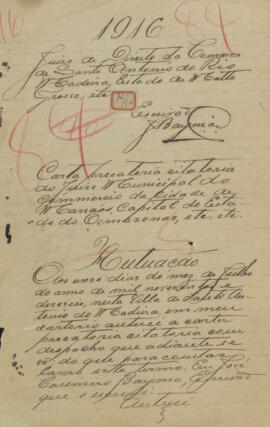 1916
Juizo de Direito da Comarca
de Santo Antonio do Rio
Madeira, Estado de Matto
Grosso, etc.
Escrivão
J. Bayma
Carta precatoria citatoria
do Juizo Municipal do
Commercio da Cidade de
Manáos, Capital do Esta
do do Amazonas, etc. etc.
Autuação
Aos onze dias do mez de Julho
do anno de mil novecentos e
deseseis, nesta Villa de Santo An
tonio do Madeira, em meu
cartorio autuei a carta
precatoria citatoria com
despacho que adiante se
vê do que para constar
lavrei este termo. Eu José
Bayma, Escrivão
que o escrevi